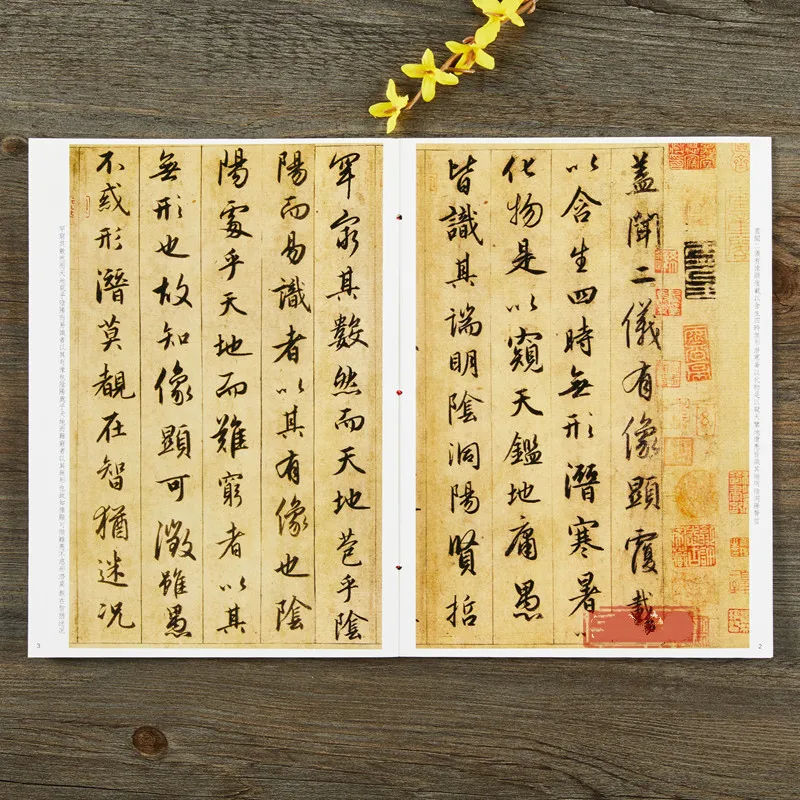 蓋聞二儀有像顯覆載
以含生四時無形潛寒暑以
化物是以窺天鑑地庸愚
皆識其端明陰洞陽賢哲
2
罕窮其數然而天地苞乎陰
陽而易識者以其有像也陰
陽處乎天地而難窮者以其
無形也故知像顯可徵雖愚
不惑形潛莫覩在智猶迷况
3